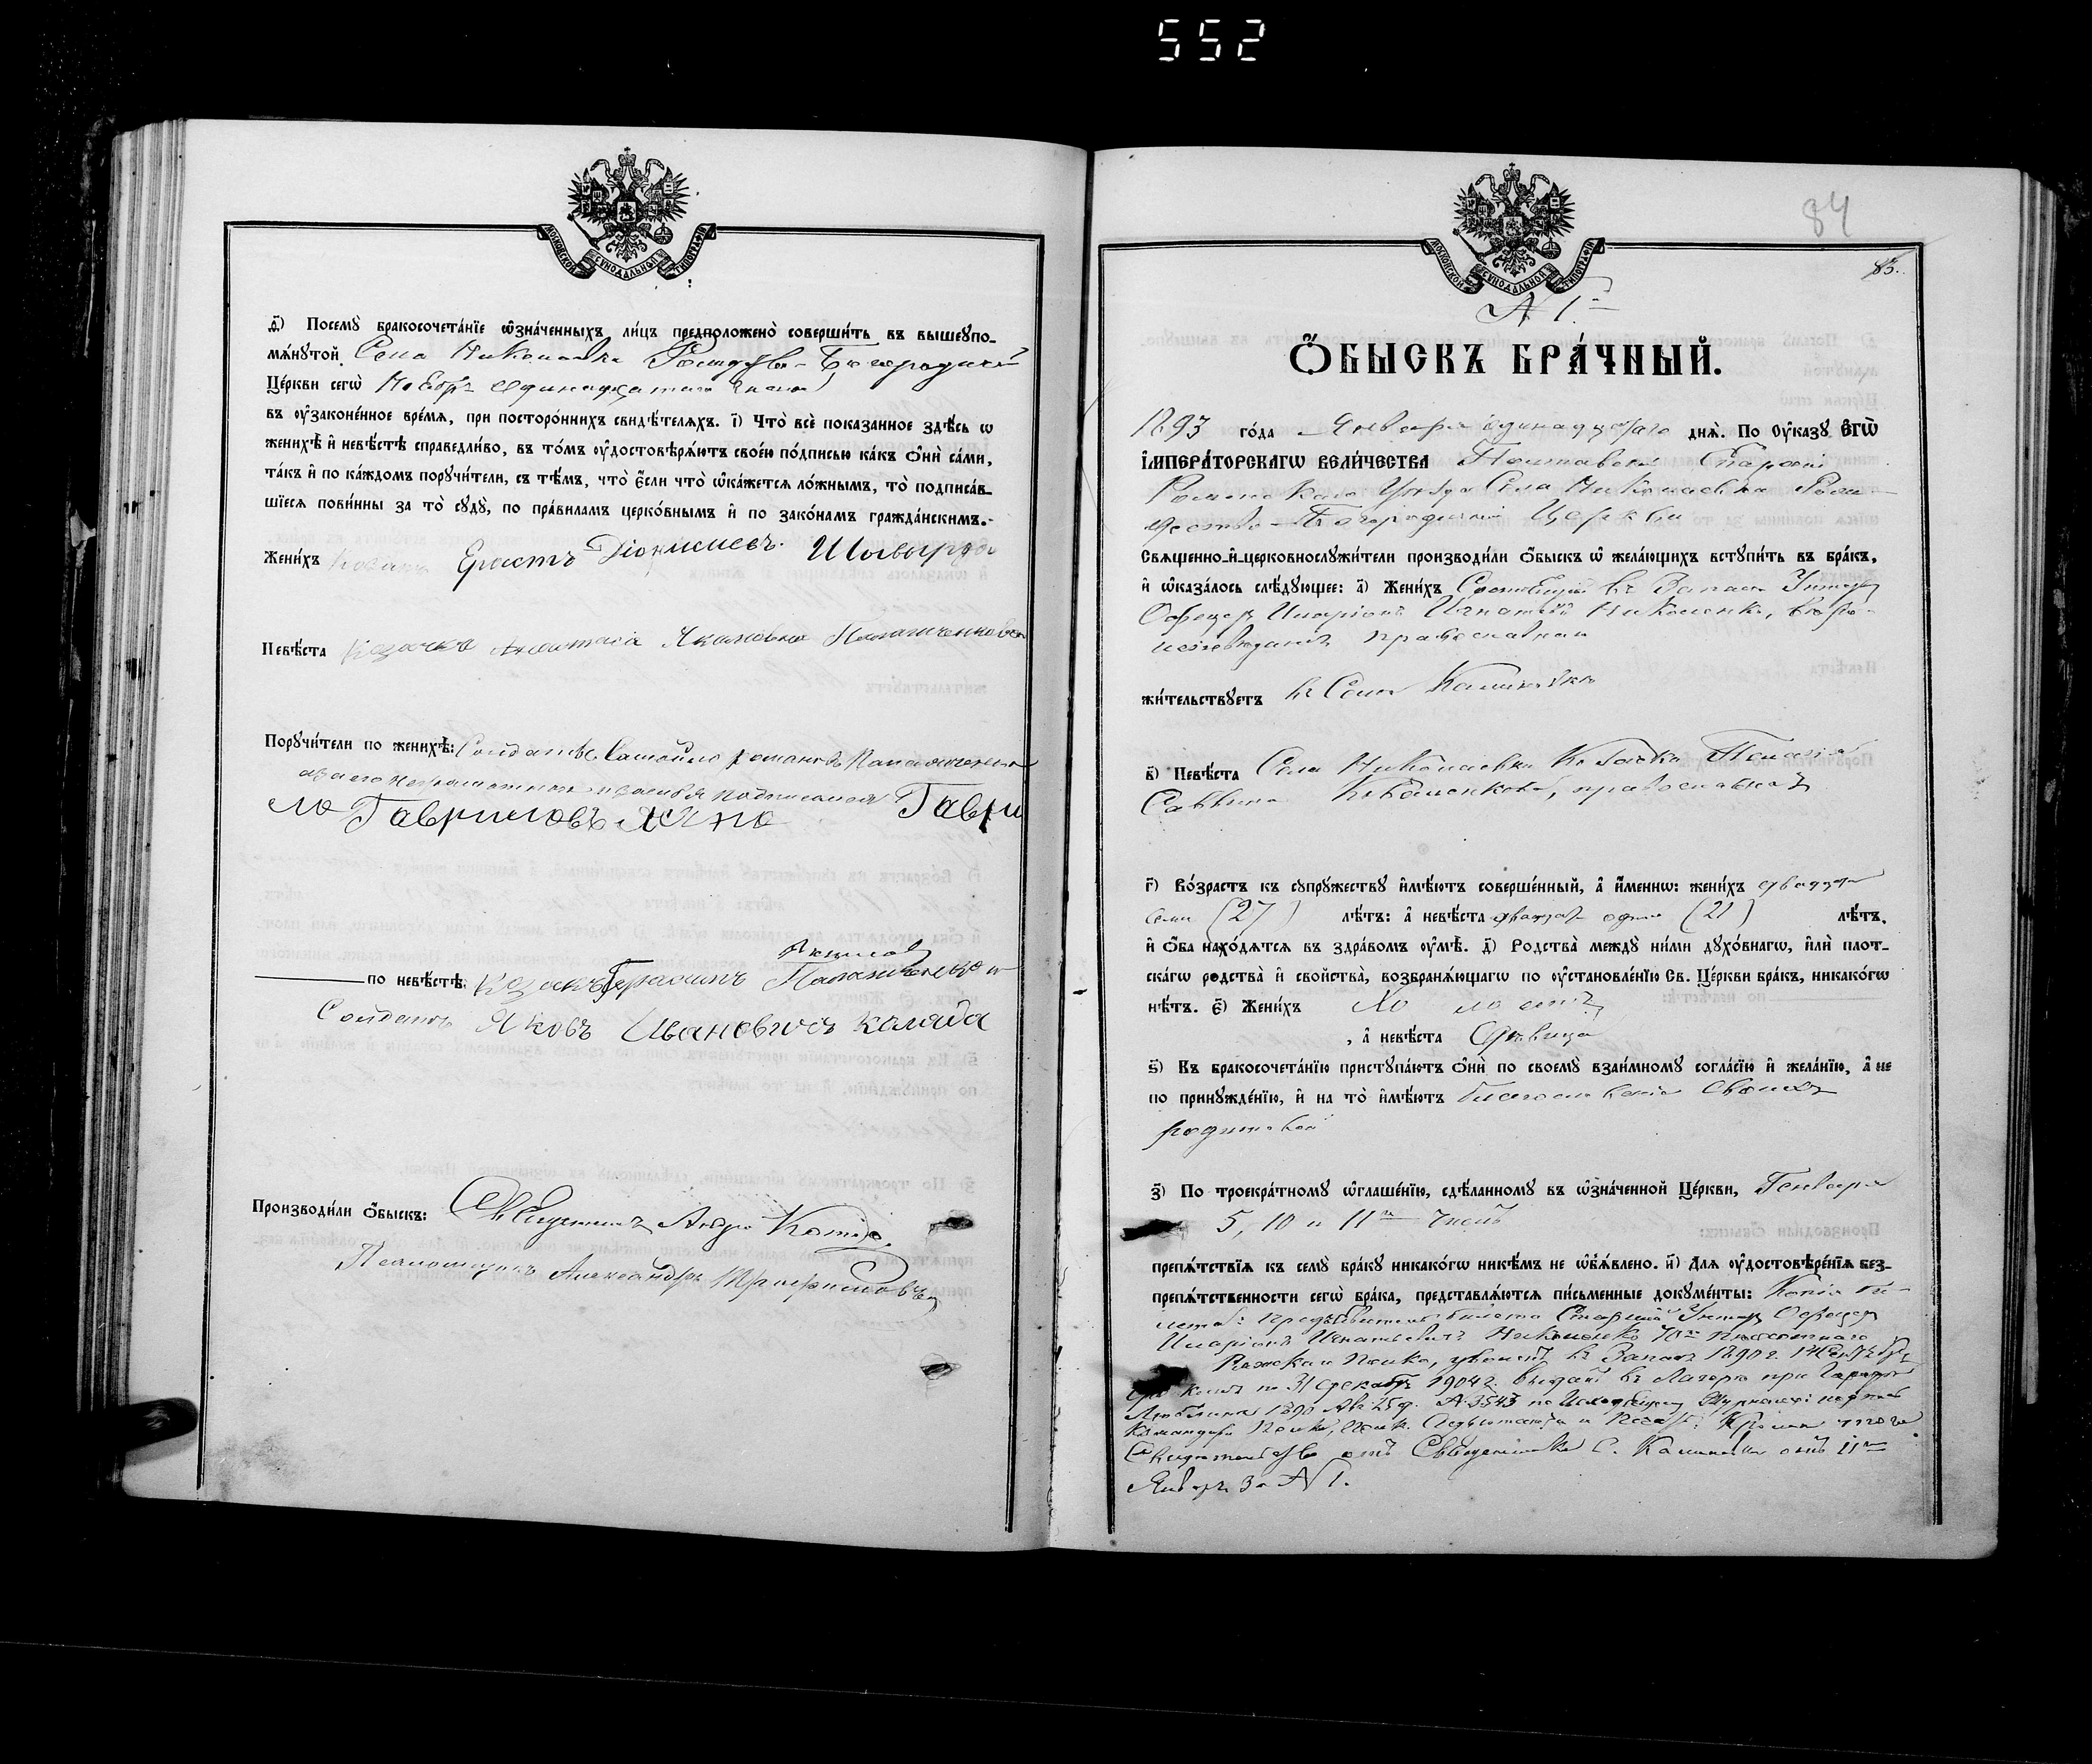 552
МОСКОВСКОЙ СѴНОДАЛЬНОЙ ТИПОГРАФІИ
ѳ҃) Посемꙋ̀ бракосочета́нїе ѡ҆зна́ченныхъ ли́цъ предположено̀ соверши́ть въ вышеꙋпо-
мѧ́нꙋтой Села Николаевки Рождество-Богородичной
Це́ркви сегѡ̀ Ноябр одинадцатаго числа
въ ᲂу҆законе́нное вре́мѧ, при посторо́ннихъ свидѣ́телѧхъ. і҃) Что̀ всѐ показанное здѣ́сь ѡ
женихѣ̀ и҆ невѣ́стѣ справедли́во, въ то́мъ ᲂу҆достовѣрѧ́ютъ свое́ю по́дписью ка́къ ѻ҆нѝ са́ми,
та́къ и҆ по ка́ждомъ порꙋчи́тели, съ тѣ́мъ, что̀ є҆́сли что̀ ѡ҆ка́жетсѧ ло́жнымъ, то̀ подписа́в-
шїесѧ пови́нны за то̀ сꙋдꙋ̀, по пра́виламъ церко́внымъ и҆ по зако́намъ гражда́нскимъ.
Жени́хъ Козакъ Ерастъ Діонисиевъ
Невѣ́ста Козачка Анастасія Якимовна
Порꙋчи́тели по женихѣ̀: Солдатъ Самойло Романовъ
неграмотнаго Гаври
ло Гавриловъ
Якимов
по невѣ́стѣ: Козакъ Герасимъ
Солдатъ Яковъ Ивановичъ Коляда
Производи́ли ѻ҆́быскъ: Священникъ Андрей
Псаломщикъ Александръ
84
83.
МОСКОВСКОЙ СѴНОДАЛЬНОЙ ТИПОГРАФІИ
№ 1.
Ѻ҆́БЫСКЪ БРА́ЧНЫЙ.
1893 го́да Января одинадцатаго днѧ̀. По Ѹ҆ка́зꙋ Є҆гѡ̀
И҆мпера́торскагѡ Вели́чества Полтавской Епархіи
Роменскаго Уезда Села Николаевки Рож-
дество-Богородичной Церкви
Свѧщенно-и҆-церковнослꙋжи́тели производи́ли ѻ҆́быскъ ѡ҆ жела́ющихъ встꙋпи́ть въ бра́къ,
и҆ ѡ҆каза́лось слѣ́дꙋющее: а҃) Жени́хъ Состоящій въ Запасе Унтер
Офицер Иларіонъ Игнатовъ Николенко, веро-
исповеданія православнаго
жи́тельствꙋетъ въ Селе Калиновке
в҃) Невѣ́ста Села Николаевки Козачка Пелагія
Саввина православная
г҃) Во́зрастъ къ сꙋпрꙋ́жествꙋ и҆мѣ́ютъ соверше́нный, а҆ и҆́меннѡ: жени́хъ двадцать
семь (27) лѣ́тъ: а҆ невѣ́ста двадцать одинъ (21) лѣ́тъ.
и҆ ѻ҆́ба нахо́дѧтсѧ въ здра́вомъ ᲂу҆мѣ̀. д҃) Родства̀ междꙋ̀ ни́ми дꙋхо́внагѡ, и҆лѝ плот-
ска́гѡ родства̀ и҆ сво́йства̀, возбранѧ́ющагѡ по ᲂу҆становле́нїю Св. Це́ркви бра́къ, никако́гѡ
нѣ́тъ. є҃) Жени́хъ Холостъ
, а҆ невѣ́ста Девица
ѕ҃) Къ бракосочета́нїю пристꙋпа́ютъ ѻ҆нѝ по своемꙋ̀ взаи́мномꙋ согла́сїю и҆ жела́нїю, а҆ не
по принꙋжде́нїю, и҆ на то̀ и҆мѣ́ютъ благословеніе своихъ
родителей
з҃) По троекра́тномꙋ ѡ҆глаше́нїю, сдѣ́ланномꙋ въ ѡ҆зна́ченной Це́ркви, Генваря
5, 10 и 11го числъ
препѧ́тствїѧ къ семꙋ̀ бра́кꙋ никако́гѡ никѣ́мъ не ѡ҆б̾ѧ́влено. и҃) Длѧ ᲂу҆достовѣре́нїѧ без-
препѧ́тственности сегѡ̀ бра́ка, представлѧ́ютсѧ пи́сьменные докꙋме́нты: Копія би-
лета: билета Старшій Унтер Офицер
Иларіонъ Игнатьевичъ Николенко 70го пехотного
Ряжскаго Полка, уволенъ въ Запасъ 1890 г.
по 31 декабр 1904 г. выданъ въ Лагере при городе
Люблине 1890 Ав. 25 д. № 3543 по Исходящему Журналу подписалъ
Командиръ Полка, и Печать. Кроме того
Свидетельство отъ Священника С. Калиновки отъ 11го
Январ за № 1.